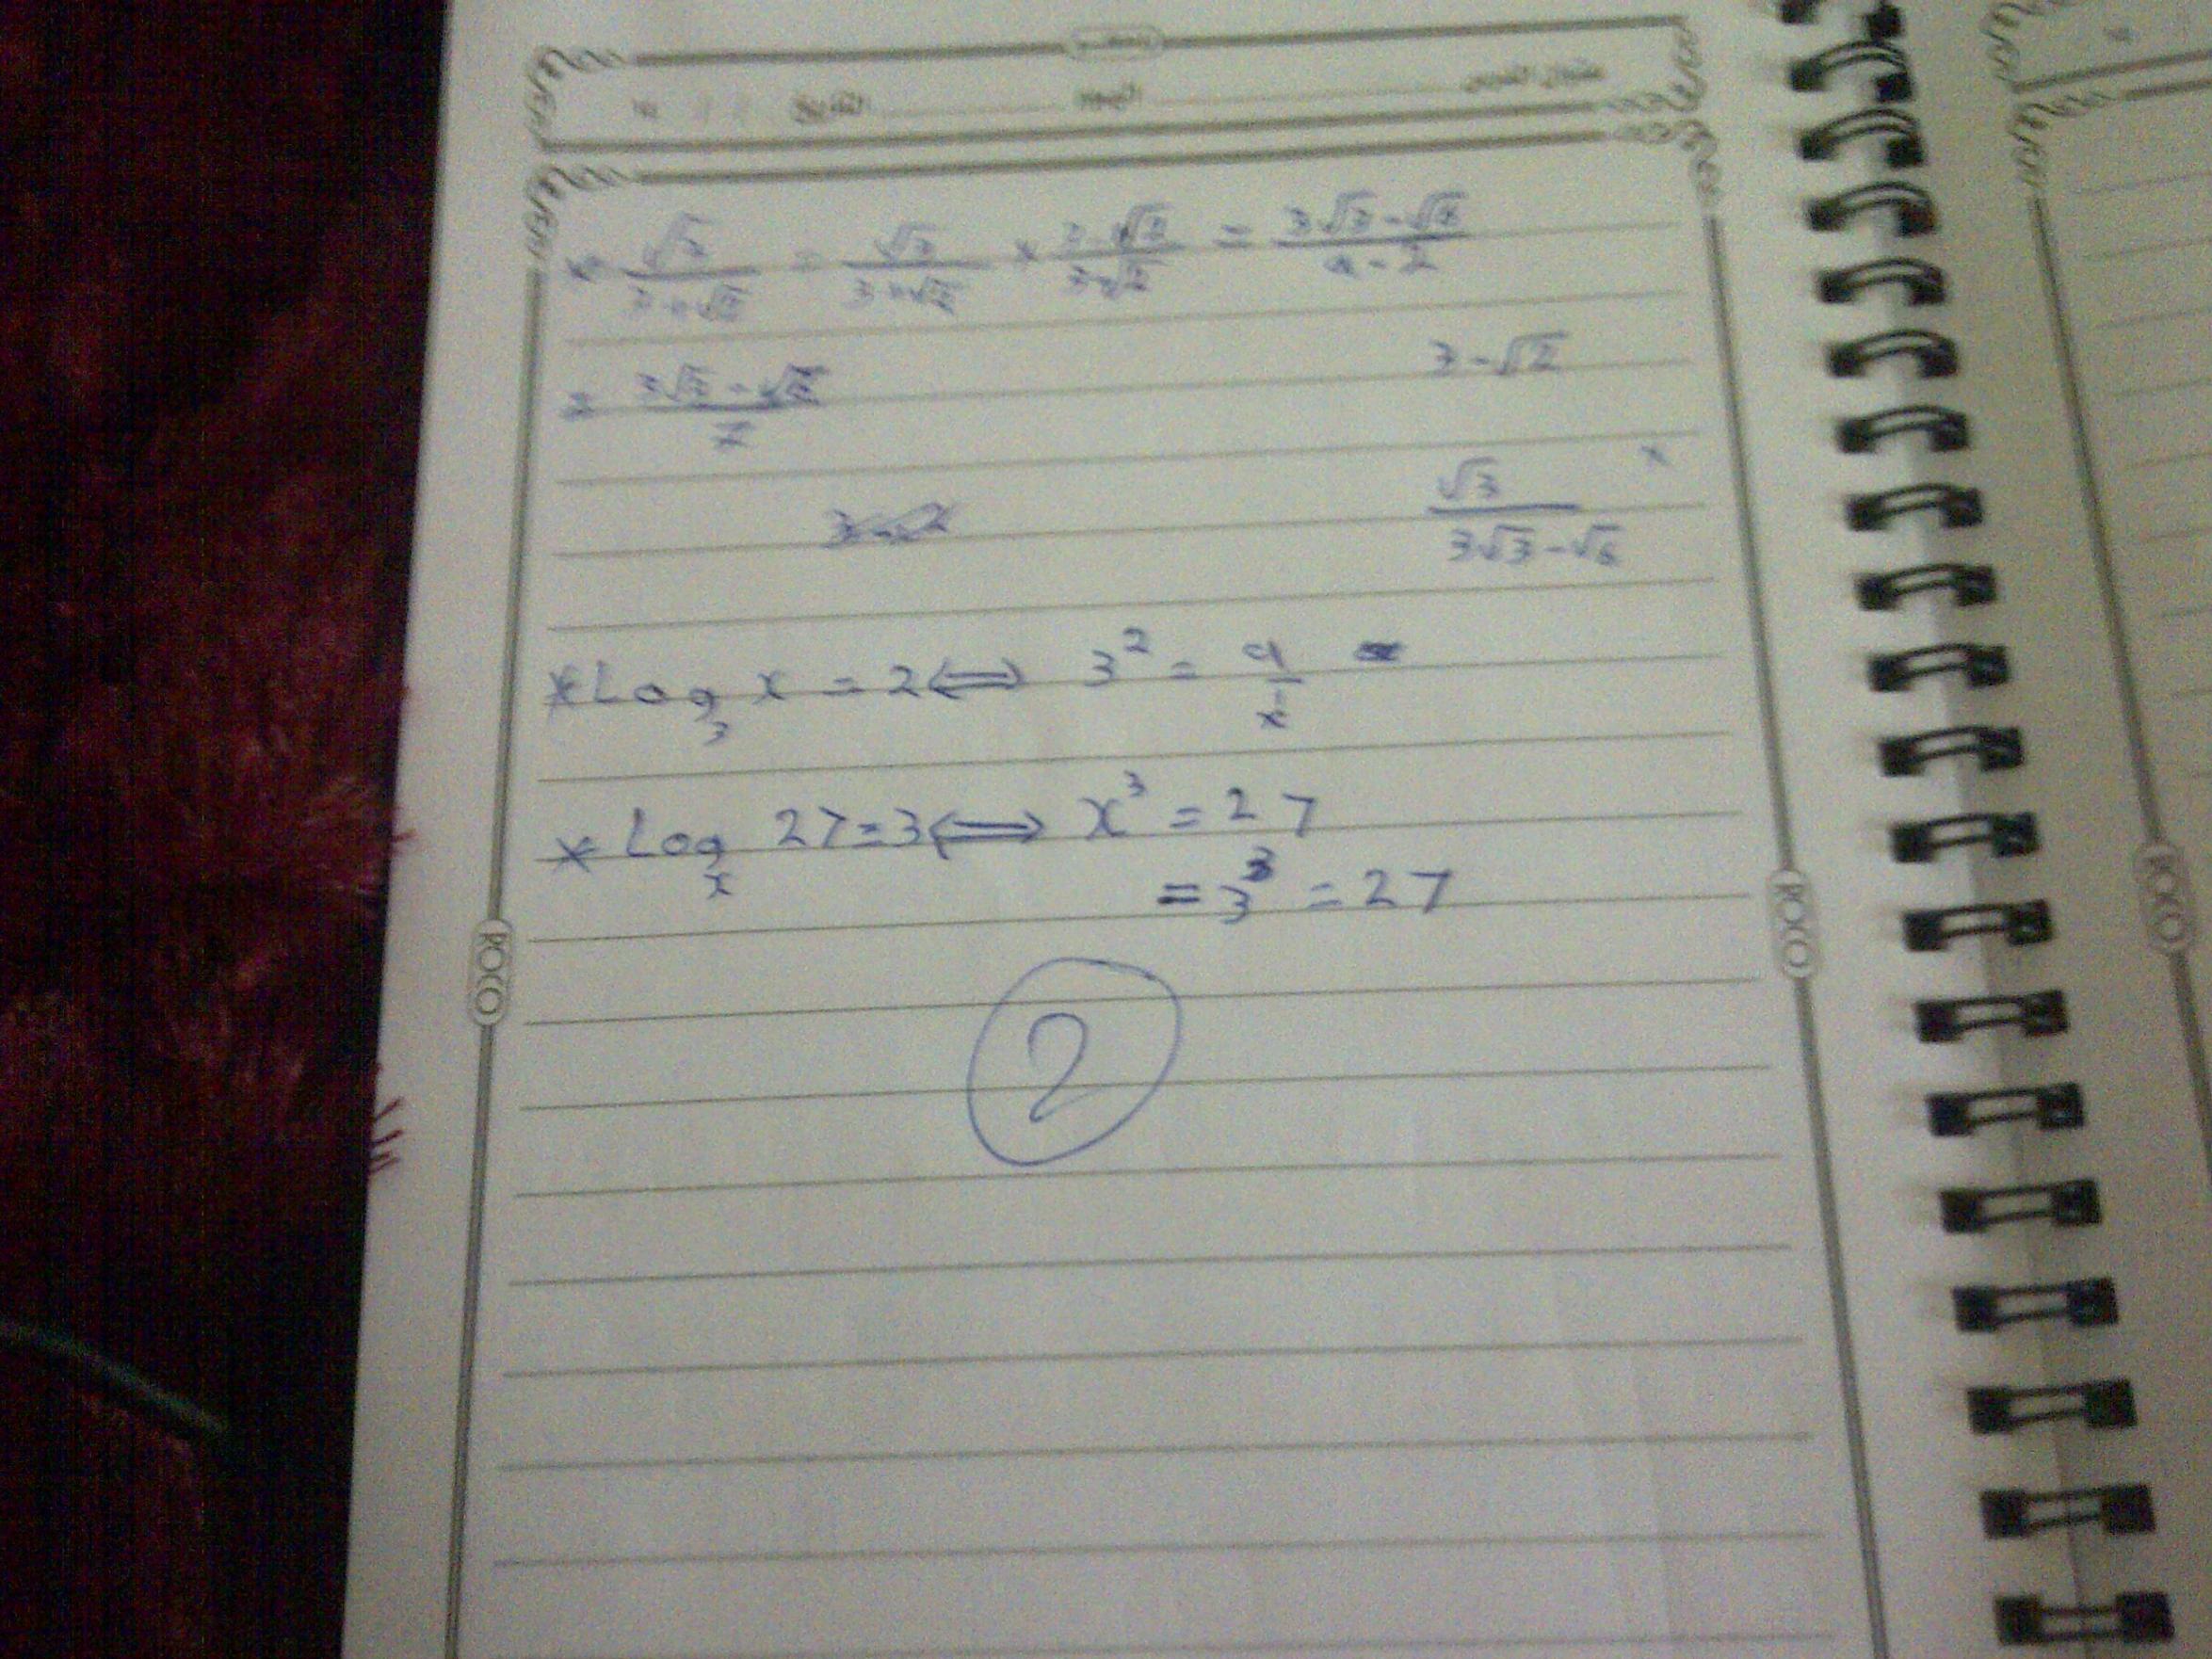 عنوان الدرس اليوم التاريخ
* √3/(3+√2) = √3/(3+√2) × (3-√2)/(3-√2) = (3√3-√6)/(9-2)
= (3√3-√6)/7
3-√2
×
√3
3√3-√6
* Log₃ x = 2 ⟺ 3² = 9
x
* Logₓ 27=3 ⟺ x³ = 27
= 3³ = 27
2
ROCO
ROCO
ROCO